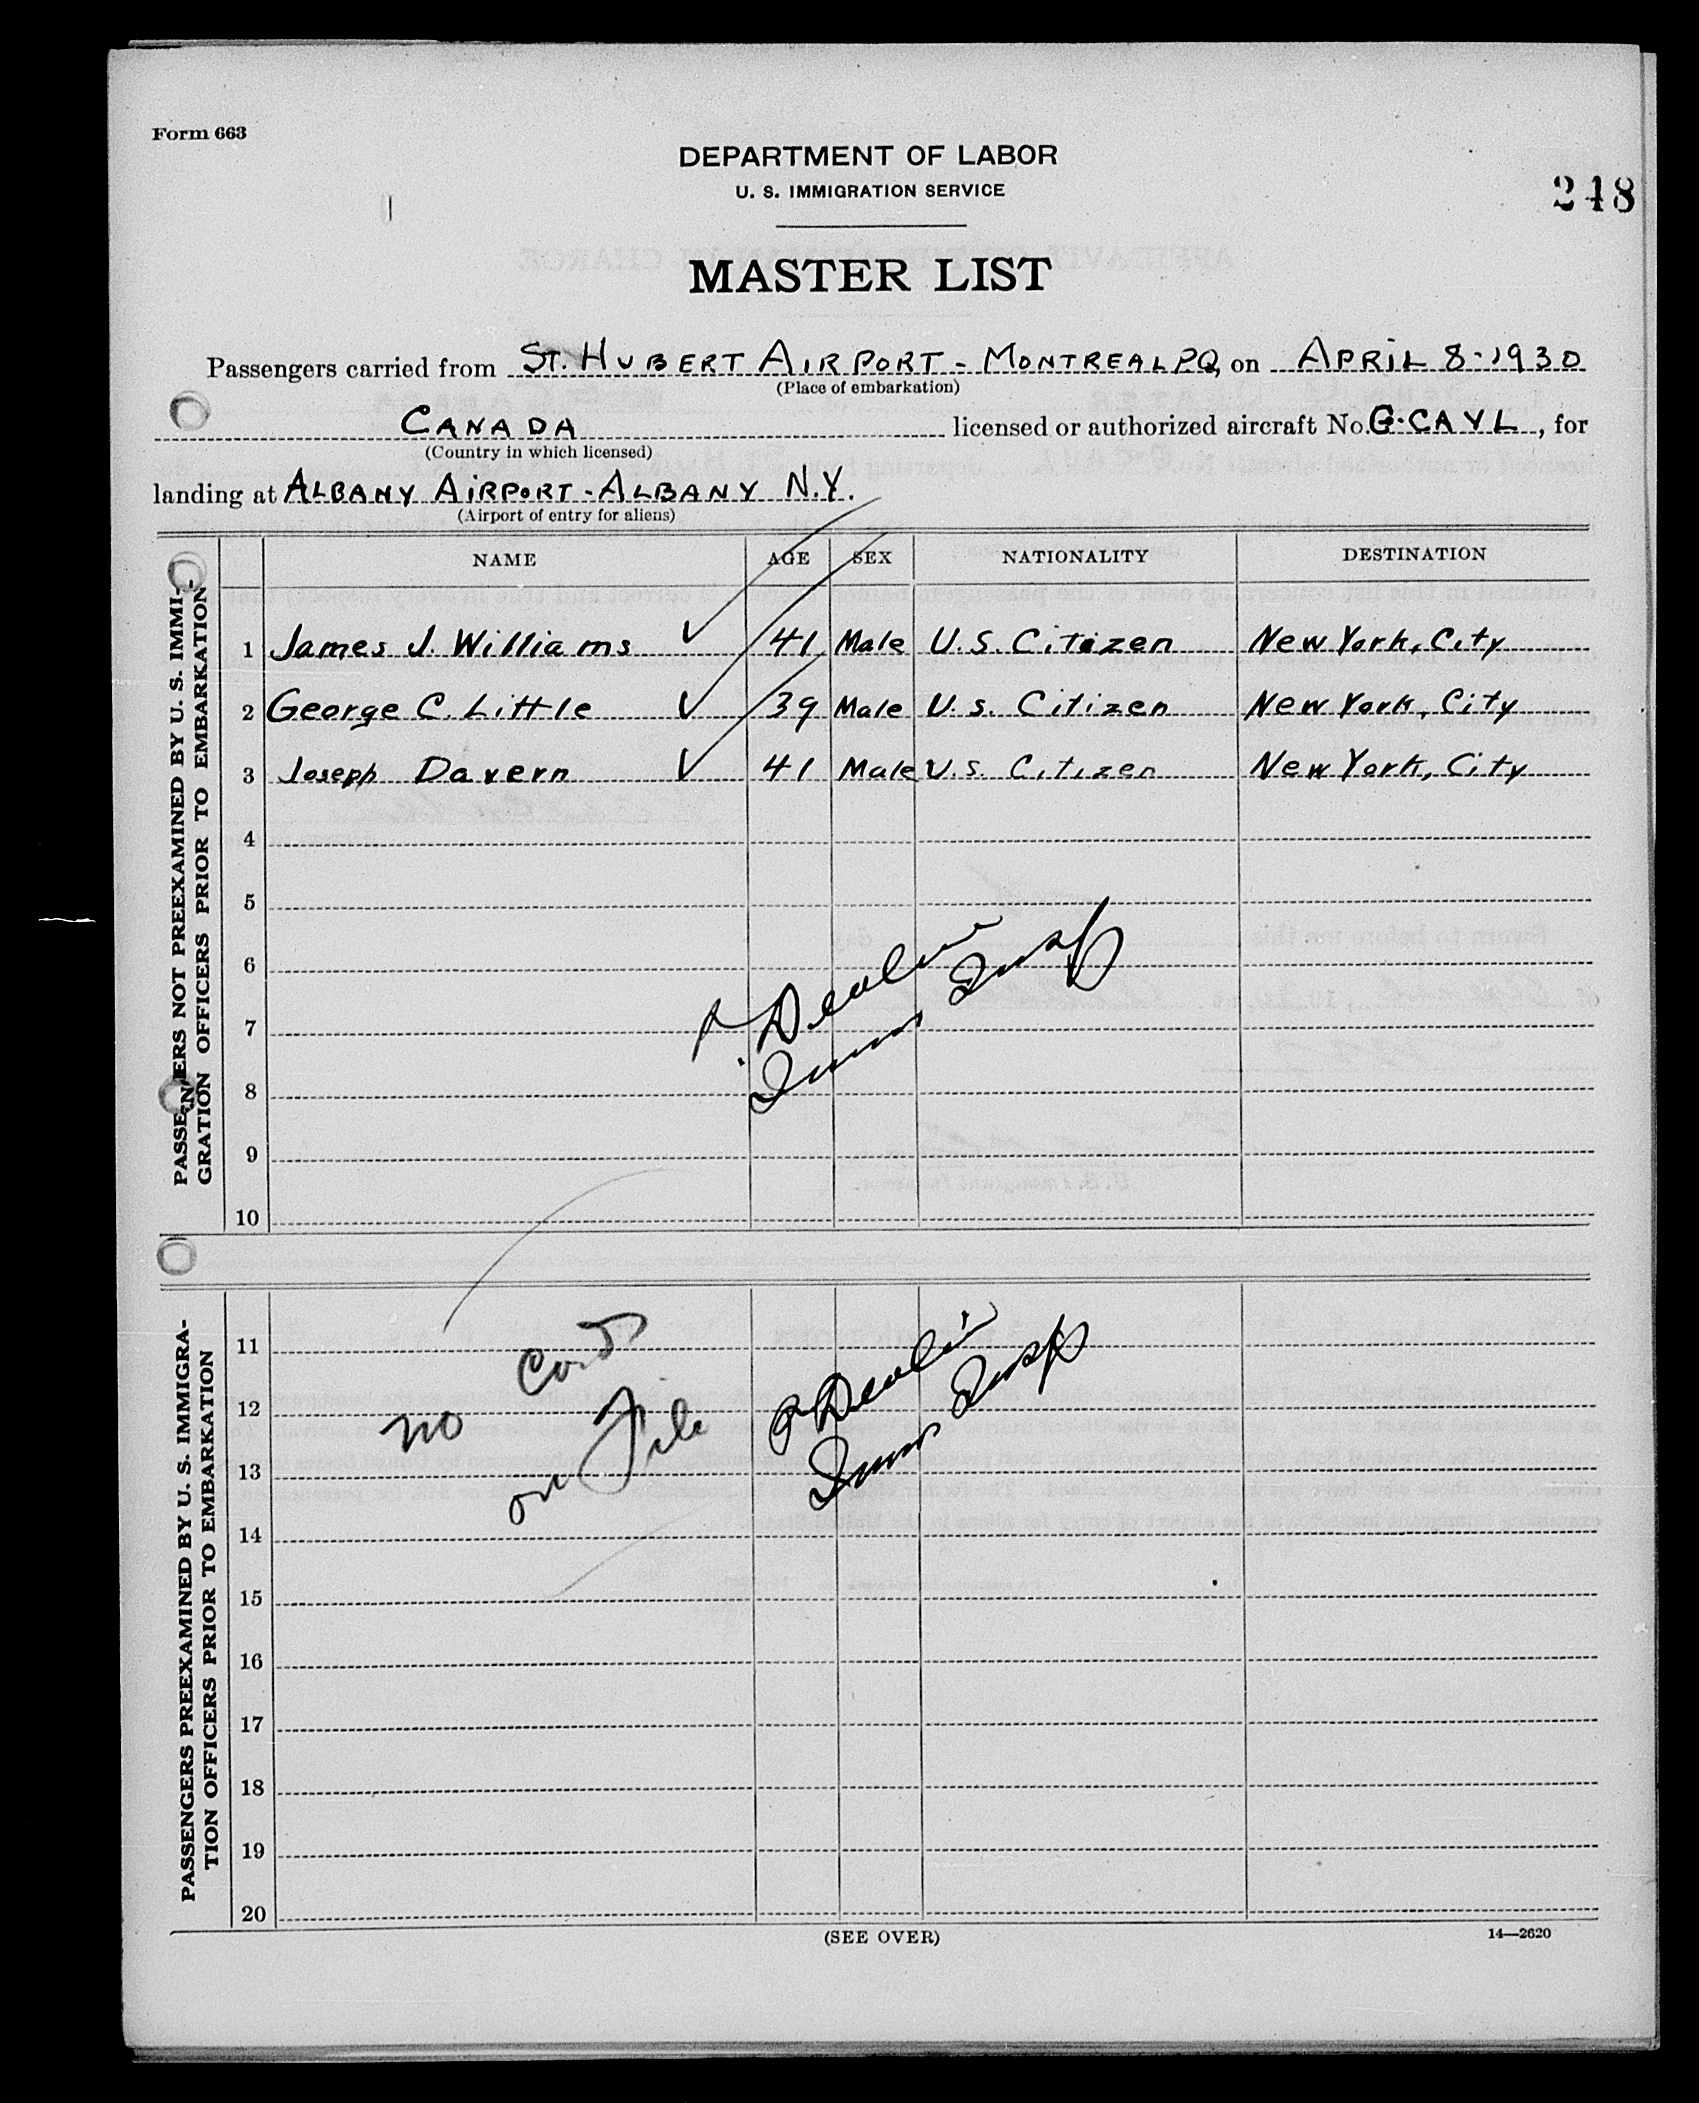 Form 663
DEPARTMENT OF LABOR
U. S. IMMIGRATION SERVICE
248
MASTER LIST
Passengers carried from ST. HUBERT AIRPORT - MONTREAL PQ, on APRIL 8-1930
(Place of embarkation)
CANADA licensed or authorized aircraft No. G-CAYL, for
(Country in which licensed)
landing at ALBANY AIRPORT - ALBANY N.Y.
(Airport of entry for aliens)
NAME AGE SEX NATIONALITY DESTINATION
PASSENGERS NOT PREEXAMINED BY U. S. IMMI-
GRATION OFFICERS PRIOR TO EMBARKATION
1 James J. Williams ✓ 41 Male U.S. Citizen New York, City
2 George C. Little ✓ 39 Male U.S. Citizen New York, City
3 Joseph Davern ✓ 41 Male U.S. Citizen New York, City
4
5
6
7
8
9
10
Devlin
Imm Insp
PASSENGERS PREEXAMINED BY U. S. IMMIGRA-
TION OFFICERS PRIOR TO EMBARKATION
11
12
13
14
15
16
17
18
19
20
no Cards
on File
P Devlin
Imm Insp
(SEE OVER)
14—2620